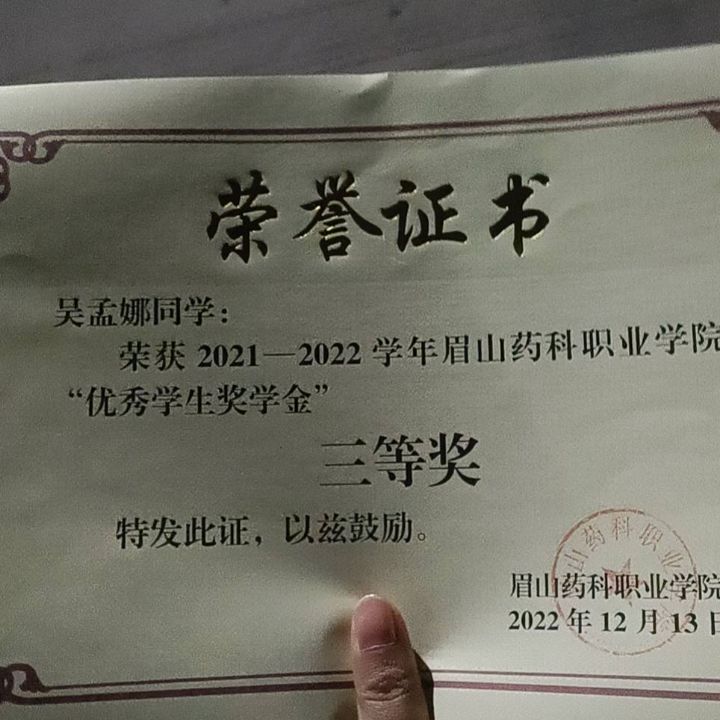 荣誉证书
吴孟娜同学：
荣获 2021—2022 学年眉山药科职业学院
“优秀学生奖学金”
三等奖
特发此证，以兹鼓励。
山药科职业
眉山药科职业学院
2022 年 12 月 13 日